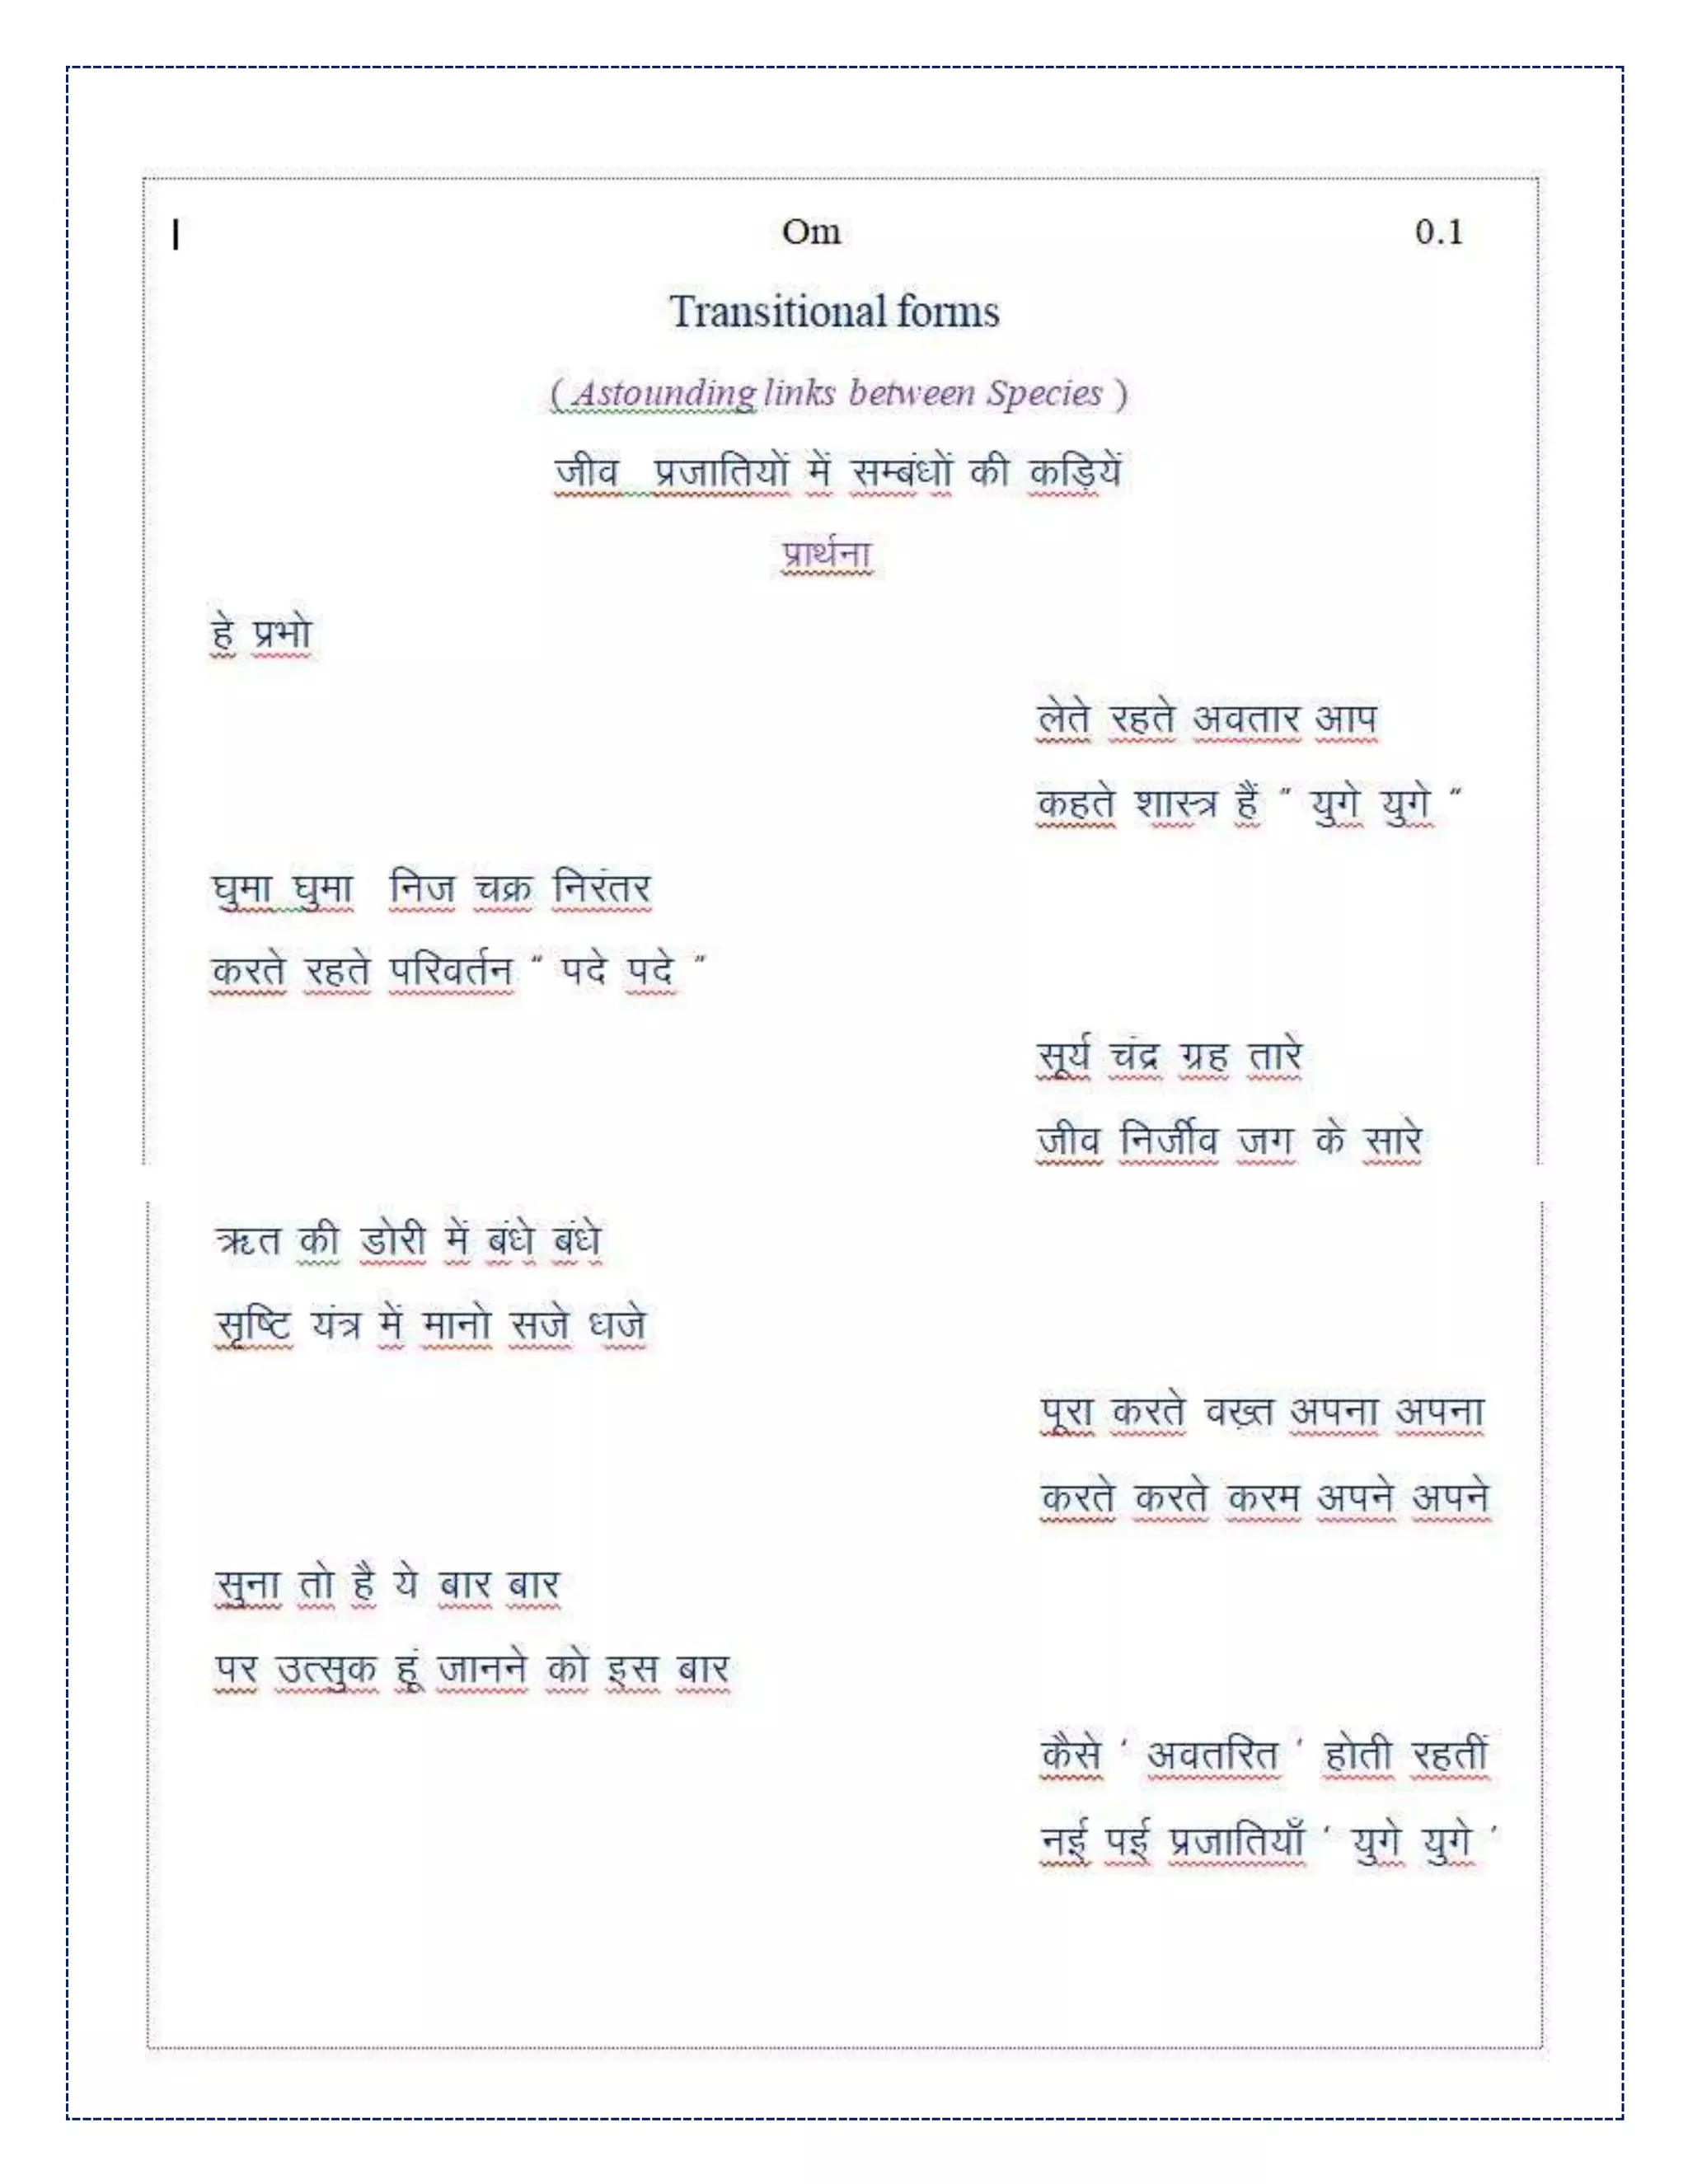 Om 0.1
Transitional forms
( Astounding links between Species )
जीव प्रजातियों में सम्बंधों की कड़ियें
प्रार्थना
हे प्रभो
लेते रहते अवतार आप
कहते शास्त्र हैं “ युगे युगे “
घुमा घुमा निज चक्र निरंतर
करते रहते परिवर्तन “ पदे पदे ”
सूर्य चंद्र ग्रह तारे
जीव निर्जीव जग के सारे
ऋत की डोरी में बंधे बंधे
सृष्टि यंत्र में मानो सजे धजे
पूरा करते वख़्त अपना अपना
करते करते करम अपने अपने
सुना तो है ये बार बार
पर उत्सुक हूं जानने को इस बार
कैसे ‘ अवतरित ‘ होती रहतीं
नई पई प्रजातियाँ ‘ युगे युगे ’